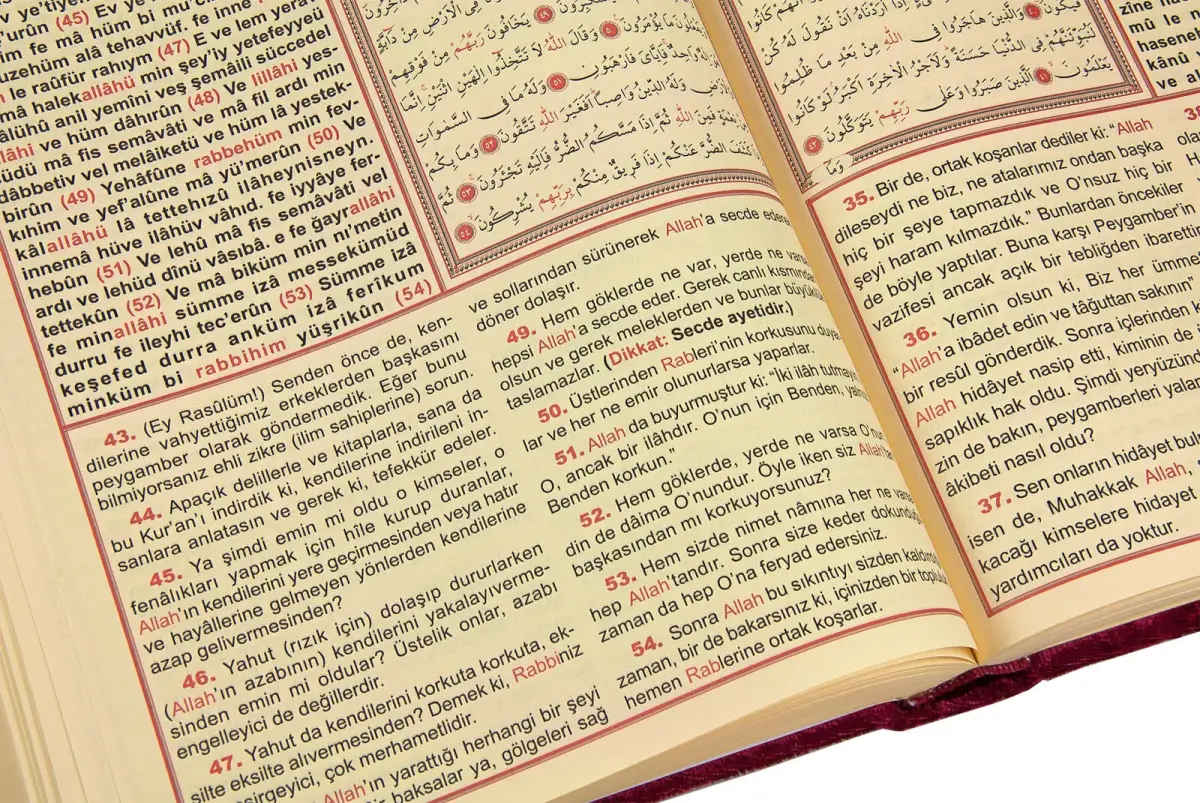 ye'tiye
'urûn (45) Ev ye
im fe mâ hüm bi mu'c
'uzehüm alâ tehavvüf. fe inne
le raûfür rahıym (47) E ve lem yerav
mâ halekallâhü min şey'iy yetefeyyeü
ılâlühû anil yemîni veş şemâili süccedel
llâhi ve hüm dâhırûn (48) Ve lillâhi yes-
üdü mâ fis semâvâti ve mâ fil ardı min
dâbbetiv vel melâiketü ve hüm lâ yestek-
birûn (49) Yehâfûne rabbehüm min fev-
kıhim ve yef'alûne mâ yü'merûn (50) Ve
kâlallâhü lâ tettehızû ilâheynisneyn.
innemâ hüve ilâhüv vâhıd. fe iyyâye fer-
hebûn (51) Ve lehû mâ fis semâvâti vel
ardı ve lehüd dînü vâsıbâ. e fe ğayrallâhi
tettekûn (52) Ve mâ biküm min nı'metin
fe minallâhi sümme izâ messekümüd
durru fe ileyhi tec'erûn (53) Sümme izâ
keşefed durra anküm izâ ferîkum
minküm bi rabbihim yüşrikûn (54)
يَسْتَكْبِرُونَ ﴿٤٩﴾ يَخَافُونَ رَبَّهُمْ مِنْ فَوْقِهِمْ
مَا يُؤْمَرُونَ ﴿٥٠﴾ وَقَالَ اللّٰهُ لَا تَتَّخِذُوا اِلٰهَيْنِ اثْنَيْنِ اِنَّمَا
وَاحِدٌ فَاِيَّايَ فَارْهَبُونِ ﴿٥١﴾ وَلَهُ مَا فِي السَّمٰوَاتِ
وَلَهُ الدِّينُ وَاصِبًا اَفَغَيْرَ اللّٰهِ تَتَّقُونَ ﴿٥٢﴾ وَمَا بِكُمْ
فَمِنَ اللّٰهِ ثُمَّ اِذَا مَسَّكُمُ الضُّرُّ فَاِلَيْهِ تَجْـَٔرُونَ ﴿٥٣﴾ ثُمَّ
كَشَفَ الضُّرَّ عَنْكُمْ اِذَا فَرِيقٌ مِنْكُمْ بِرَبِّهِمْ يُشْرِكُونَ ﴿٥٤﴾
43. (Ey Rasûlüm!) Senden önce de, ken-
dilerine vahyettiğimiz erkeklerden başkasını
peygamber olarak göndermedik. Eğer bunu
bilmiyorsanız ehli zikre (ilim sahiplerine) sorun.
44. Apaçık delillerle ve kitaplarla, sana da
bu Kur'an'ı indirdik ki, kendilerine indirileni in-
sanlara anlatasın ve gerek ki, tefekkür edeler.
45. Ya şimdi emin mi oldu o kimseler, o
fenâlıkları yapmak için hîle kurup duranlar,
Allah'ın kendilerini yere geçirmesinden veya hatır
ve hayâllerine gelmeyen yönlerden kendilerine
azap gelivermesinden?
46. Yahut (rızık için) dolaşıp dururlarken
(Allah'ın azabının) kendilerini yakalayıverme-
sinden emin mi oldular? Üstelik onlar, azabı
engelleyici de değillerdir.
47. Yahut da kendilerini korkuta korkuta, ek-
silte eksilte alıvermesinden? Demek ki, Rabbiniz
esirgeyici, çok merhametlidir.
Allah'ın yarattığı herhangi bir şeyi
bir baksalar ya, gölgeleri sağ
ve sollarından sürünerek Allah'a secde ederek
döner dolaşır.
49. Hem göklerde ne var, yerde ne varsa
hepsi Allah'a secde eder. Gerek canlı kısmından
olsun ve gerek meleklerden ve bunlar büyüklük
taslamazlar. (Dikkat: Secde ayetidir.)
50. Üstlerinden Rableri'nin korkusunu duyar-
lar ve her ne emir olunurlarsa yaparlar.
51. Allah da buyurmuştur ki: "İki ilâh tutmayın
O, ancak bir ilâhdır. O'nun için Benden, yalnız
Benden korkun."
52. Hem göklerde, yerde ne varsa O'nun
din de dâima O'nundur. Öyle iken siz Allah'tan
başkasından mı korkuyorsunuz?
53. Hem sizde nimet nâmına her ne varsa
hep Allah'tandır. Sonra size keder dokunduğu
zaman da hep O'na feryad edersiniz.
54. Sonra Allah bu sıkıntıyı sizden kaldırdığı
zaman, bir de bakarsınız ki, içinizden bir topluluk
hemen Rablerine ortak koşarlar.
وَالَّذِينَ هَاجَرُوا فِي اللّٰهِ مِنْ بَعْدِ مَا ظُلِمُوا
لَنُبَوِّئَنَّهُمْ فِي الدُّنْيَا حَسَنَةً وَلَاَجْرُ الْاٰخِرَةِ اَكْبَرُ لَوْ كَانُوا
يَعْلَمُونَ ﴿٤١﴾ اَلَّذِينَ صَبَرُوا وَعَلٰى رَبِّهِمْ يَتَوَكَّلُونَ ﴿٤٢﴾
وَمَا
zîne hâ
mû le n
hasene
kânû
ve a
35. Bir de, ortak koşanlar dediler ki: "Allah
dileseydi ne biz, ne atalarımız ondan başka
hiç bir şeye tapmazdık ve O'nsuz hiç bir
şeyi haram kılmazdık." Bunlardan öncekiler
de böyle yaptılar. Buna karşı Peygamber'in
vazifesi ancak açık bir tebliğden ibarettir
36. Yemin olsun ki, Biz her ümmet
"Allah'a ibâdet edin ve tâğuttan sakının"
bir resûl gönderdik. Sonra içlerinden
Allah hidâyet nasip etti, kiminin de
sapıklık hak oldu. Şimdi yeryüzün
zin de bakın, peygamberleri yala
âkibeti nasıl oldu?
37. Sen onların hidâyet bu
isen de, Muhakkak Allah,
kacağı kimselere hidayet
yardımcıları da yoktur.